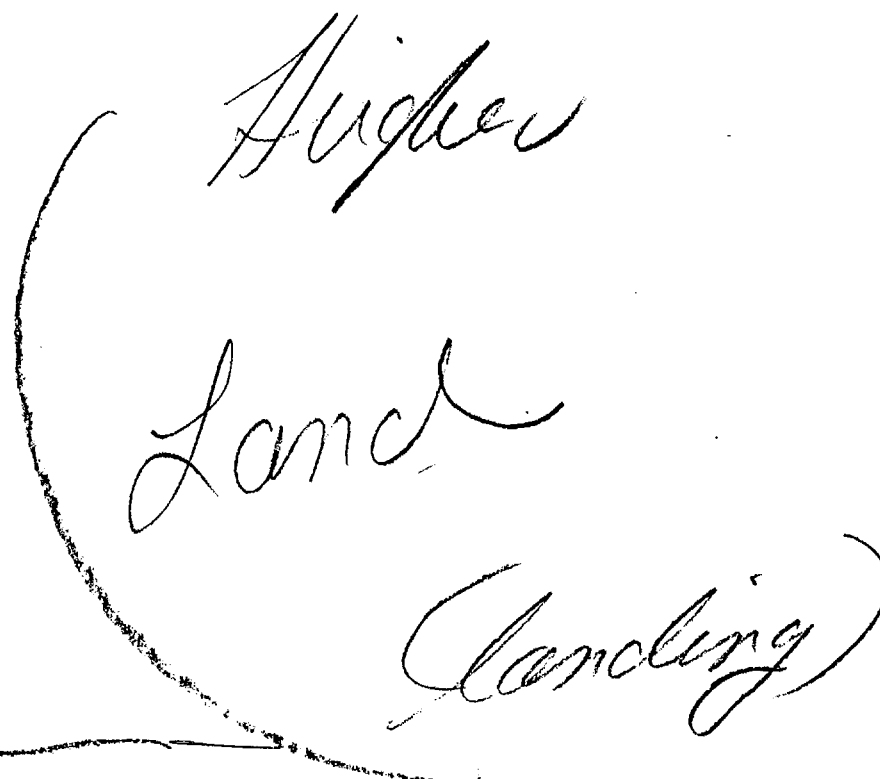 Higher
Land
(landing)